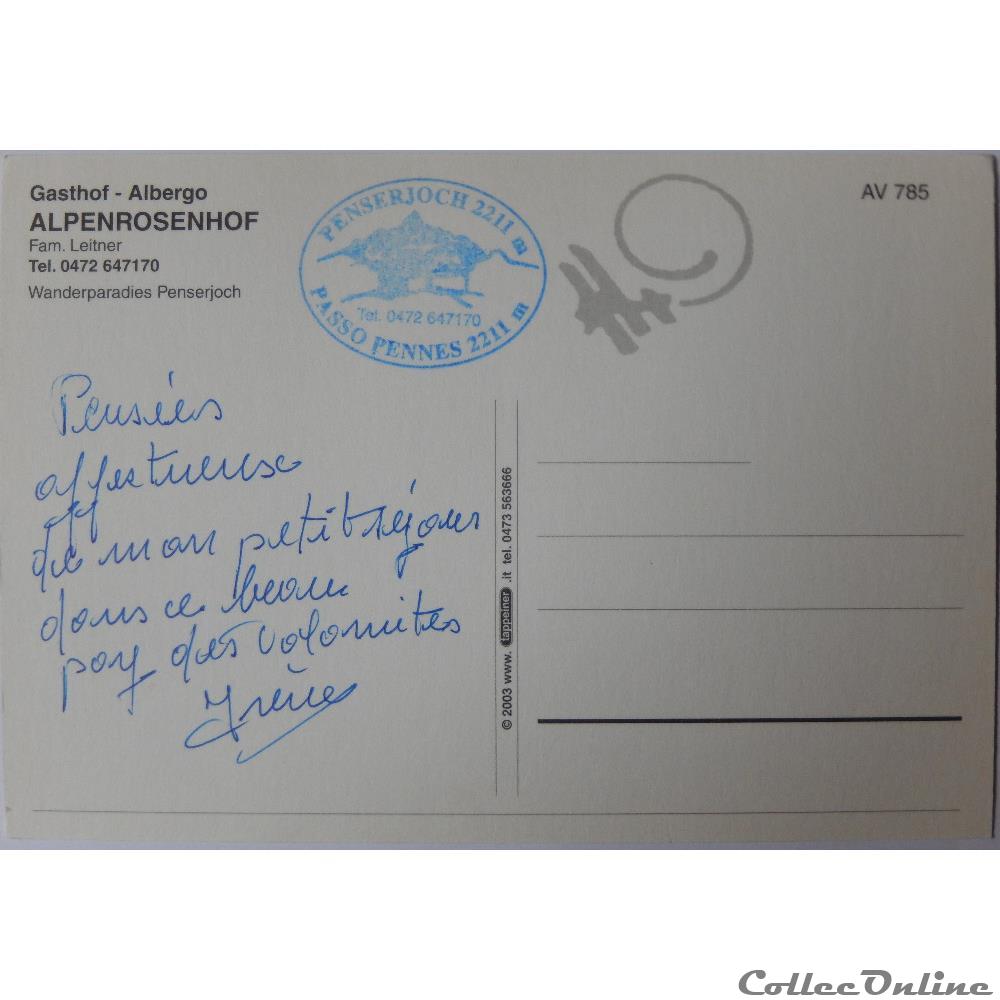 Gasthof - Albergo
ALPENROSENHOF
Fam. Leitner
Tel. 0472 647170
Wanderparadies Penserjoch
PENSERJOCH 2211 m
Tel. 0472 647170
PASSO PENNES 2211 m
AV 785
Pensées
affectueuse
de mon petit séjour
dans ce beau
pay des Dolomites
Irène
© 2003 www. tappeiner .it tel. 0473 563666
CollecOnline